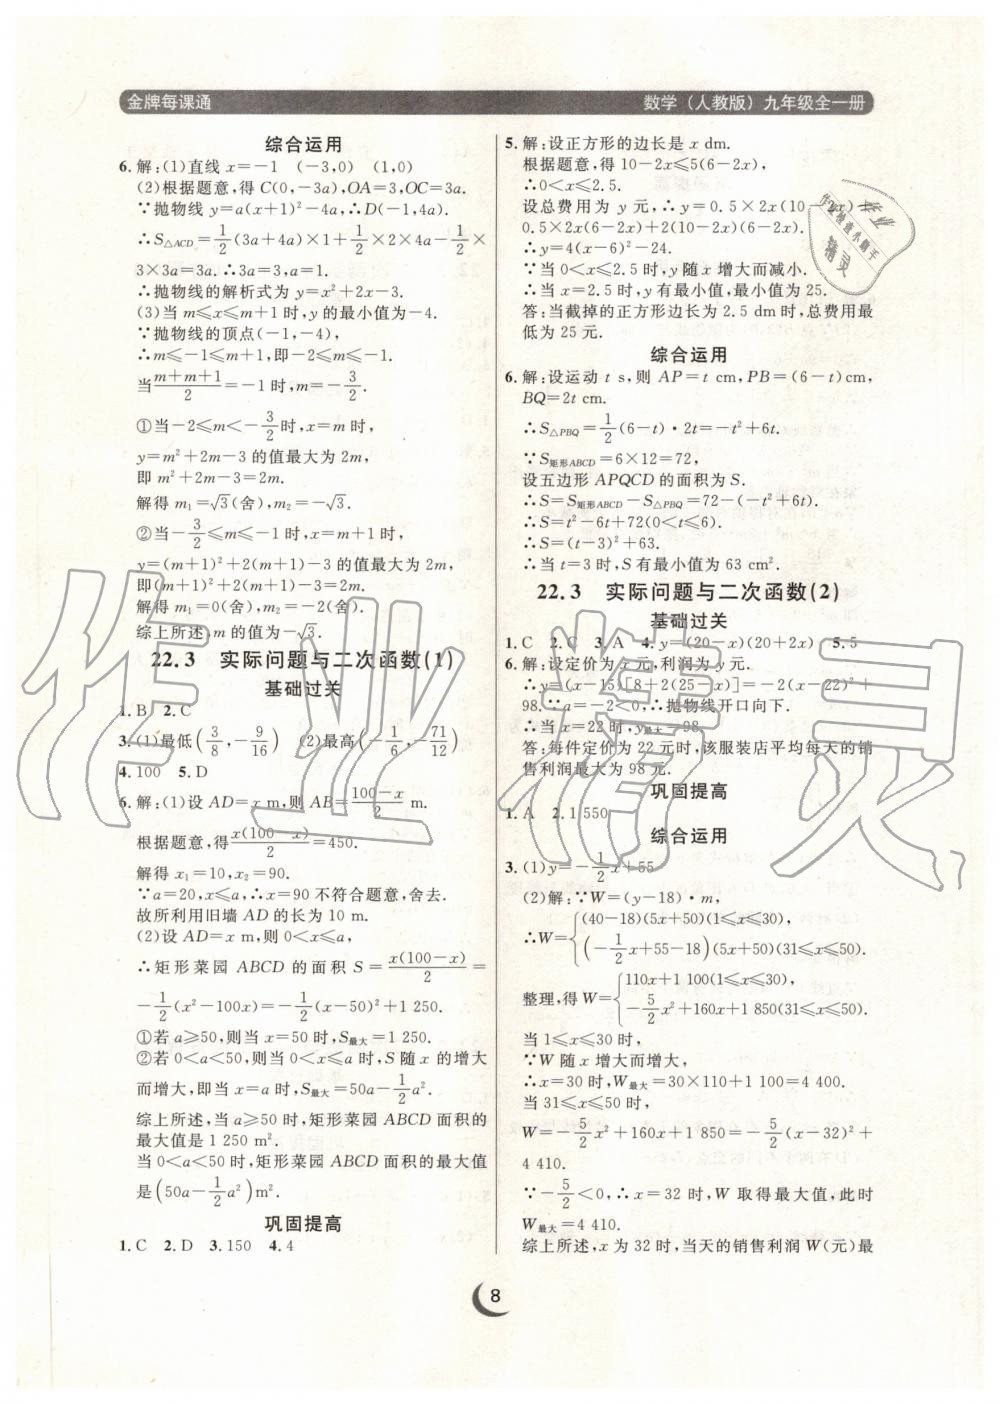 金牌每课通
数学（人教版）九年级全一册
综合运用
6. 解:(1)直线 x=-1 (-3,0) (1,0)
(2)根据题意,得 C(0,-3a),OA=3,OC=3a.
∵抛物线 y=a(x+1)²-4a,∴D(-1,4a).
∴S△ACD=1/2(3a+4a)×1+1/2×2×4a-1/2×
3×3a=3a.∴3a=3,a=1.
∴抛物线的解析式为 y=x²+2x-3.
(3)当 m≤x≤m+1 时,y 的最小值为-4.
∵抛物线的顶点(-1,-4),
∴m≤-1≤m+1,即-2≤m≤-1.
当(m+m+1)/2=-1 时,m=-3/2.
①当-2≤m<-3/2时,x=m 时,
y=m²+2m-3 的值最大为 2m,
即 m²+2m-3=2m.
解得 m₁=√3(舍),m₂=-√3.
②当-3/2≤m≤-1 时,x=m+1 时,
y=(m+1)²+2(m+1)-3 的值最大为 2m,
即(m+1)²+2(m+1)-3=2m.
解得 m₁=0(舍),m₂=-2(舍).
综上所述,m 的值为-√3.
22.3 实际问题与二次函数(1)
基础过关
1. B 2. C
3. (1)最低(3/8,-9/16) (2)最高(-1/6,-71/12)
4. 100 5. D
6. 解:(1)设 AD=x m,则 AB=(100-x)/2 m.
根据题意,得x(100-x)/2=450.
解得 x₁=10,x₂=90.
∵a=20,x≤a,∴x=90 不符合题意,舍去.
故所利用旧墙 AD 的长为 10 m.
(2)设 AD=x m,则 0<x≤a,
∴矩形菜园 ABCD 的面积 S=x(100-x)/2=
-1/2(x²-100x)=-1/2(x-50)²+1 250.
①若 a≥50,则当 x=50 时,S最大=1 250.
②若 0<a<50,则当 0<x≤a 时,S 随 x 的增大
而增大,即当 x=a 时,S最大=50a-1/2a².
综上所述,当 a≥50 时,矩形菜园 ABCD 面积的
最大值是 1 250 m².
当 0<a<50 时,矩形菜园 ABCD 面积的最大值
是(50a-1/2a²)m².
巩固提高
1. C 2. D 3. 150 4. 4
5. 解:设正方形的边长是 x dm.
根据题意,得 10-2x≤5(6-2x),
∴0<x≤2.5.
设总费用为 y 元,∴y=0.5×2x(10-2x)+
0.5×2x(6-2x)+2(10-2x)(6-2x).
∴y=4(x-6)²-24.
∵当 0<x≤2.5 时,y 随 x 增大而减小.
∴当 x=2.5 时,y 有最小值,最小值为 25.
答:当截掉的正方形边长为 2.5 dm 时,总费用最
低为 25 元.
综合运用
6. 解:设运动 t s,则 AP=t cm,PB=(6-t)cm,
BQ=2t cm.
∴S△PBQ=1/2(6-t)·2t=-t²+6t.
∵S矩形ABCD=6×12=72,
设五边形 APQCD 的面积为 S.
∴S=S矩形ABCD-S△PBQ=72-(-t²+6t).
∴S=t²-6t+72(0<t≤6).
∴S=(t-3)²+63.
∴当 t=3 时,S 有最小值为 63 cm².
22.3 实际问题与二次函数(2)
基础过关
1. C 2. C 3. A 4. y=(20-x)(20+2x) 5. 5
6. 解:设定价为 x 元,利润为 y 元.
∴y=(x-15)[8+2(25-x)]=-2(x-22)²+
98.∵a=-2<0,∴抛物线开口向下.
∴当 x=22 时,y最大=98.
答:每件定价为 22 元时,该服装店平均每天的销
售利润最大为 98 元.
巩固提高
1. A 2. 1 550
综合运用
3. (1)y=-1/2x+55
(2)解:∵W=(y-18)·m,
∴W={(40-18)(5x+50)(1≤x≤30),
(-1/2x+55-18)(5x+50)(31≤x≤50).
整理,得 W={110x+1 100(1≤x≤30),
-5/2x²+160x+1 850(31≤x≤50).
当 1≤x≤30 时,
∵W 随 x 增大而增大,
∴x=30 时,W最大=30×110+1 100=4 400.
当 31≤x≤50 时,
W=-5/2x²+160x+1 850=-5/2(x-32)²+
4 410.
∵-5/2<0,∴x=32 时,W 取得最大值,此时
W最大=4 410.
综上所述,x 为 32 时,当天的销售利润 W(元)最
8
作业精灵